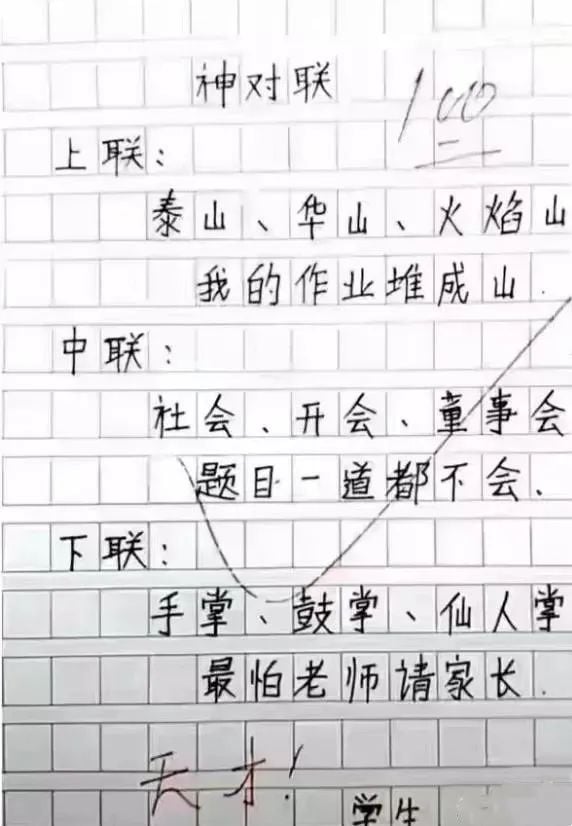 神对联
100
上联:
泰山、华山、火焰山
我的作业堆成山.
中联:
社会、开会、童事会
题目一道都不会、
下联:
手掌、鼓掌、仙人掌
最怕老师请家长.
天才!
学生